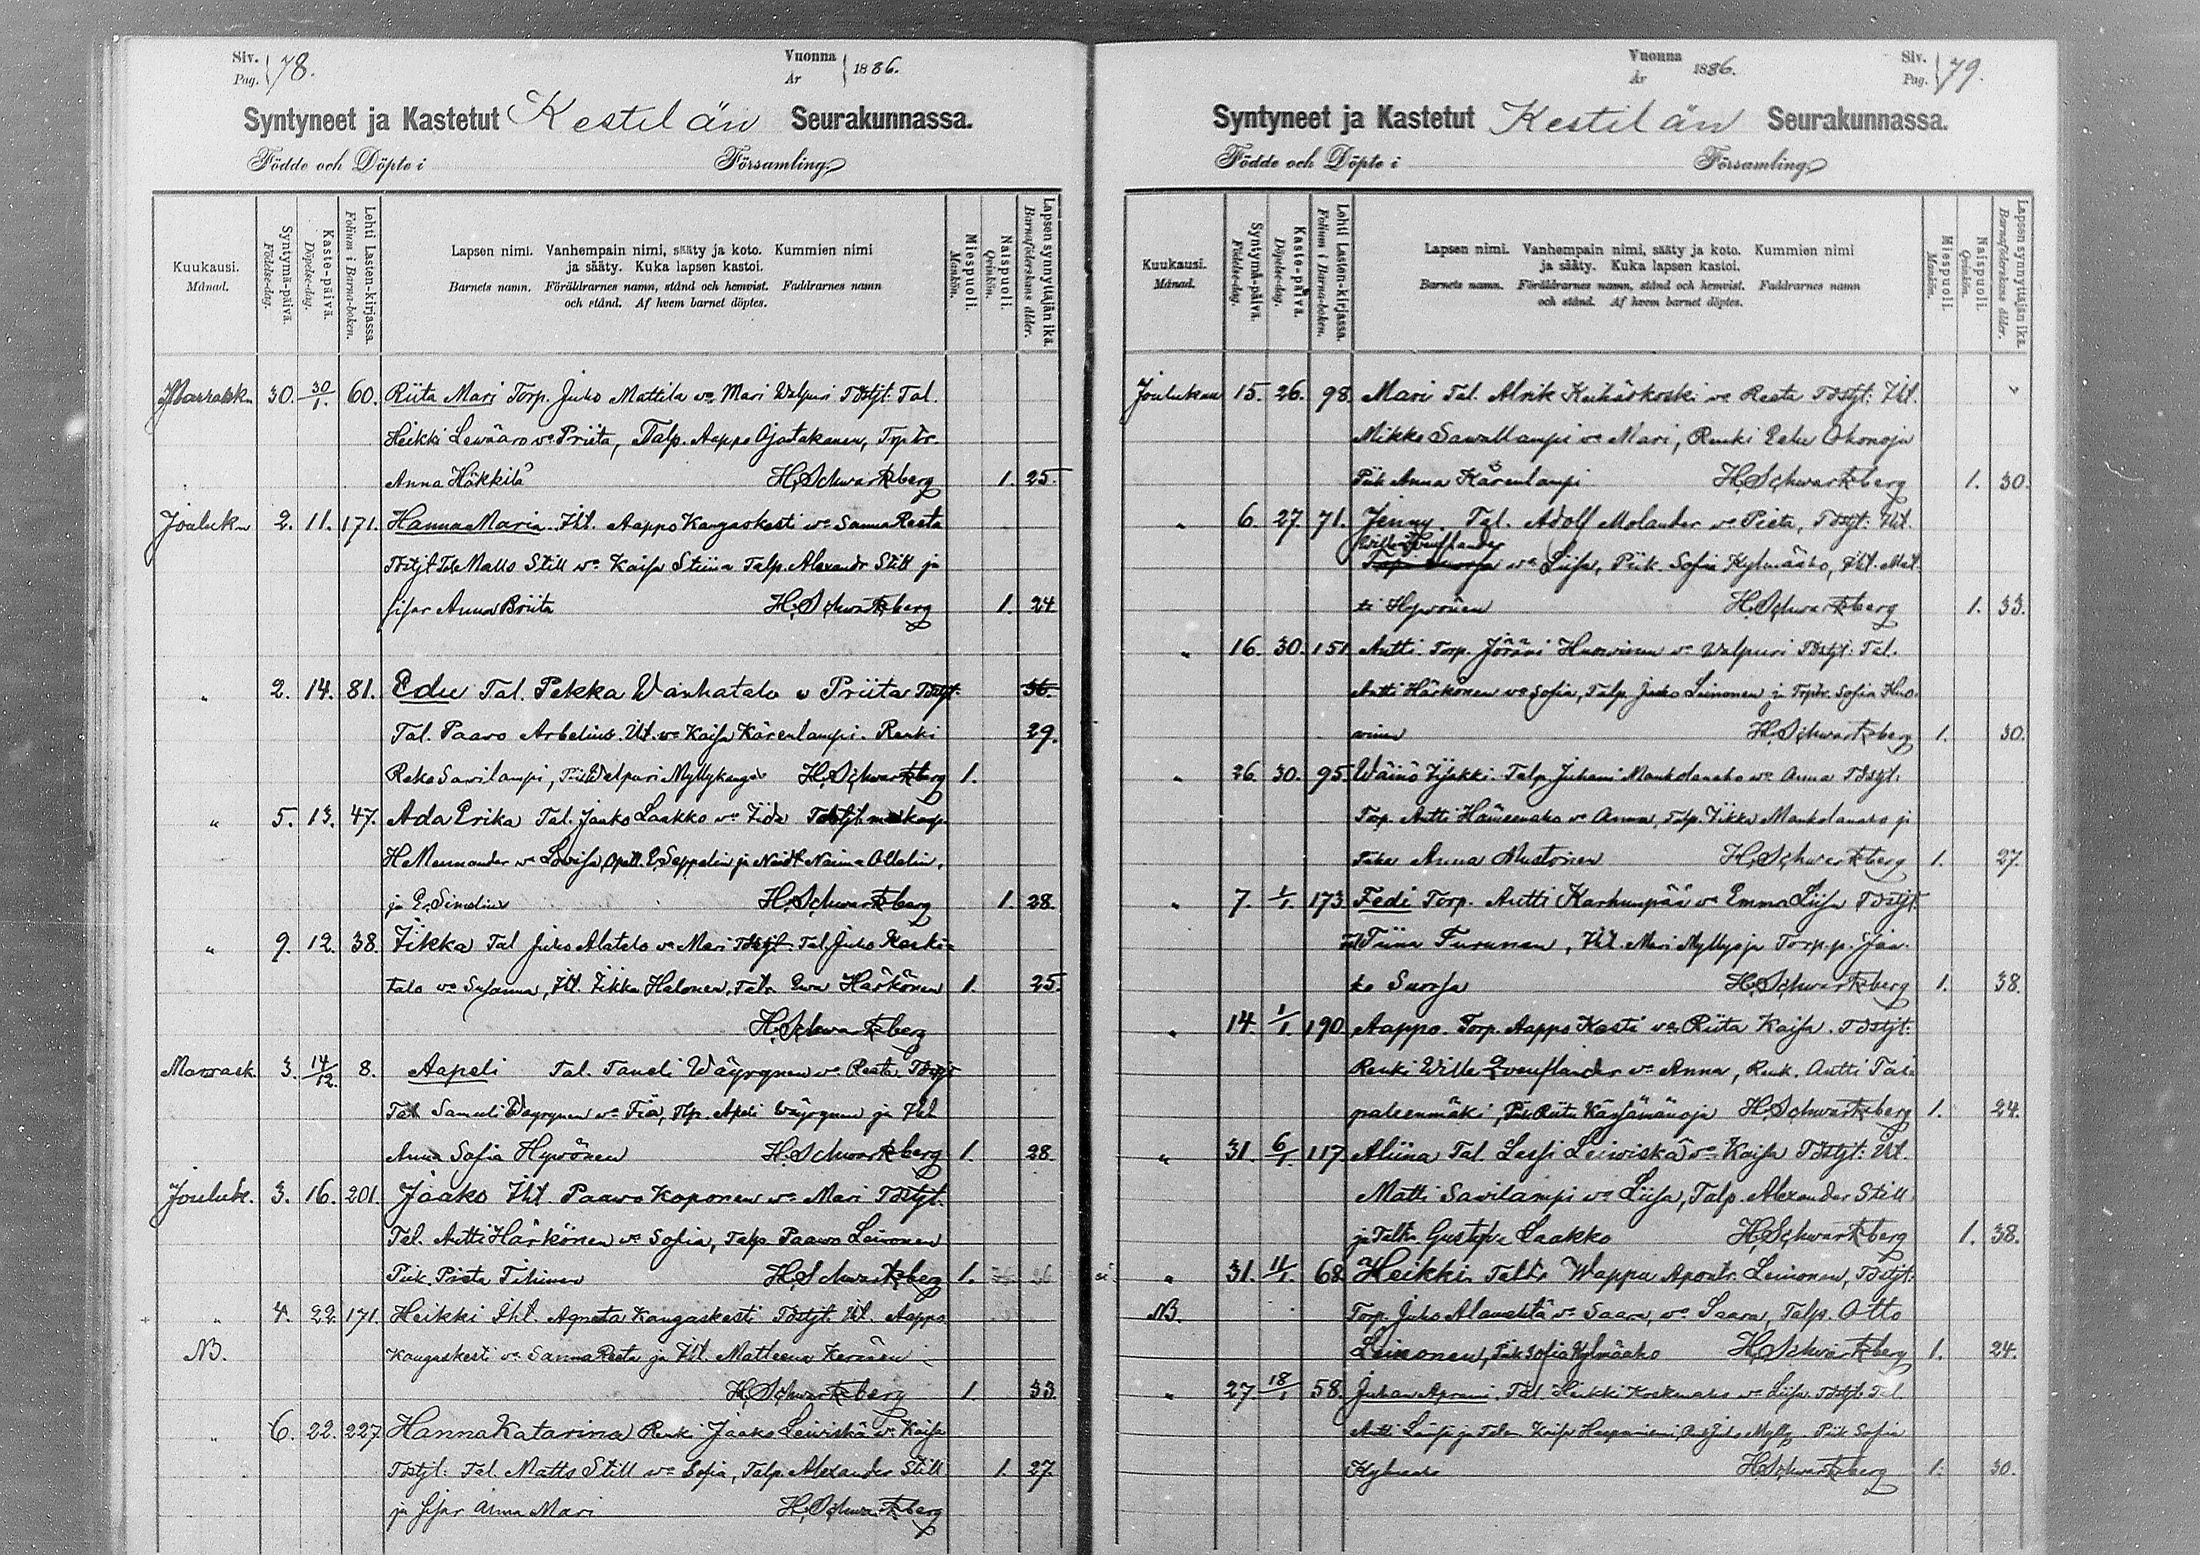 Siv. Pag. 78. Vuonna År 1886.
Syntyneet ja Kastetut Kestilän Seurakunnassa.
Födde och Döpte i Församling
Kuukausi. Månad.
Syntymä-päivä. Födelse-dag.
Kaste-päivä. Döpelse-dag.
Lehti Lasten-kirjassa. Folium i Barna-boken.
Lapsen nimi. Vanhempain nimi, sääty ja koto. Kummien nimi
ja sääty. Kuka lapsen kastoi.
Barnets namn. Föräldrarnes namn, stånd och hemvist. Faddrarnes namn
och stånd. Af hvem barnet döptes.
Miespuoli. Mankön.
Naispuoli. Qvinkön.
Lapsen synnyttäjän ikä. Barnaföderskans ålder.
Marrask. 30. 30/1. 60. Riita Mari Torp. Juho Mattila vo Mari Walpuri Tdstjt: Tal.
Heikki Lewäaro vo Priita, Talp. Aappo Ajatakanen, Trptr.
Anna Häkkilä H. Schwartzberg 1. 25.
Jouluk. 2. 11. 171. Hanna Maria Itl. Aappo Kangaskesti vo Sanna Reeta
Tdstjt Tal. Matts Still vo Kaisa Stiina Talp. Alexandr Still ja
sisar Anna Briita H. Schwartzberg 1. 24
" 2. 14. 81. Edu Tal. Pekka Wanhatalo v Priita Tdstjt: 36.
Tal. Paavo Arbelius. Itl. vo Kaisa Kärenlampi. Renki 29.
Reko Savilampi, Piik Walpuri Myllykangas H. Schwartzberg 1.
" 5. 13. 47. Ada Erika Tal. Jaako Laakko vo Iida Tdstjt: maakaup.
H. Mennander vo Lovisa, Opett. E. Seppelin ja Neidt Naima Ollelin,
ja E. Simelius H. Schwartzberg 1. 28.
" 9. 12. 38. Iikka Tal Juho Alatalo vo Mari Tdstjt. Tal. Juho Keski-
talo vo Susanna, Itl. Iikka Halonen, Taltr. Ewa Härkönen 1. 25.
H. Schwartzberg
Marrask. 3. 14/12. 8. Aapeli Tal. Taneli Wäyrynen vo Reeta Tdstjt
Tal Samuli Wäyrynen vo Fia, Tlp. Apeli Wäyrynen ja Itl.
Anna Sofia Hywönen H. Schwartzberg 1. 28.
Jouluk. 3. 16. 201. Jaako Itl. Paawo Koponen vo Mari Tdstjt.
Tal. Antti Härkönen vo Sofia, Talp. Paawo Leinonen
Piik. Priita Tihinen H. Schwartzberg 1. 36
" 4. 22. 171. Heikki Itl. Agneta Kangaskesti Tdstjt. Itl. Aappo
NB. Kangaskesti vo Sanna Reeta ja Itl. Matleena Keränen
H. Schwartzberg 1. 33
" 6. 22. 227. Hanna Katarina Renki Jaako Leiviskä vo Kaisa
Tdstjt: Tal. Matts Still vo Sofia, Talp. Alexander Still 1. 27.
ja sisar Anna Mari H. Schwartzberg
Vuonna År 1886. Siv. Pag. 79.
Syntyneet ja Kastetut Kestilän Seurakunnassa.
Födde och Döpte i Församling
Kuukausi. Månad.
Syntymä-päivä. Födelse-dag.
Kaste-päivä. Döpelse-dag.
Lehti Lasten-kirjassa. Folium i Barna-boken.
Lapsen nimi. Vanhempain nimi, sääty ja koto. Kummien nimi
ja sääty. Kuka lapsen kastoi.
Barnets namn. Föräldrarnes namn, stånd och hemvist. Faddrarnes namn
och stånd. Af hvem barnet döptes.
Miespuoli. Mankön.
Naispuoli. Qvinkön.
Lapsen synnyttäjän ikä. Barnaföderskans ålder.
Joulukuu 15. 26. 98. Mari Tal. Alrik Keihäskoski vo Reeta Tdstjt: Itl. "
Mikko Sawallampi vo Mari, Renki Eelu Ohonoja
Piik Anna Kärenlampi H. Schwartzberg 1. 30.
" 6. 27. 71. Jenny. Tal. Adolf Molander vo Pieta, Tdstjt: Itl.
vo Liisa, Piik. Sofia Kylmäaho, Itl. Mat-
ti Hywönen H. Schwartzberg 1. 33.
" 16. 30. 151. Antti Torp. Jöräni Huovinen vo Walpuri Tdstjt: Tal.
Antti Härkönen vo Sofia, Talp. Juho Leinonen ja Trptr. Sofia Huo-
vinen H. Schwartzberg 1. 30.
" 26. 30. 95. Wäinö Iisakki Talp. Juhani Mankolanaho vo Anna Tdstjt.
Torp. Antti Hämeenaho vo Anna, Talp. Iikka Mankolanaho ja
Piika Anna Mustonen H. Schwartzberg 1. 27.
" 7. 1/1. 173. Fedi Torp. Antti Karhunpää vo Emma Liisa Tdstjt.
Tiina Turunen, Itl. Mari Myllyoja Torp.p. Jaa-
ko Suorsa H. Schwartzberg 1. 38.
" 14. 1/1. 190. Aappo. Torp. Aappo Kesti vo Riita Kaisa. Tdstjt:
Renki Wille Qvenflander vo Anna, Renk. Antti Tai-
paleenmäki, Piik Riita Kärsämänoja H. Schwartzberg 1. 24.
" 31. 6/1. 117. Aliina Tal. Lassi Leiwiskä vo Kaisa Tdstjt: Itl.
Matti Savilampi vo Liisa, Talp. Alexander Still
ja Taltr. Gustava Laakko H. Schwartzberg 1. 38.
" 31. 11/1. 68. Heikki. Taltr. Wappu Apontr. Leinonen, Tdstjt:
NB. Torp. Juho Alanehtä vo Saara, vo Saara, Talp. Otto
Leinonen, Piik Sofia Kylmäaho H. Schwartzberg 1. 24.
" 27. 18/1 58. Juhan Aprami. Tal. Heikki Koskenaho vo Liisa Tdstjt. Tal.
Antti ja Kaisa Haapaniemi, Juho Mylly Piik Sofia
Kylmäaho H. Schwartzberg 1. 30.